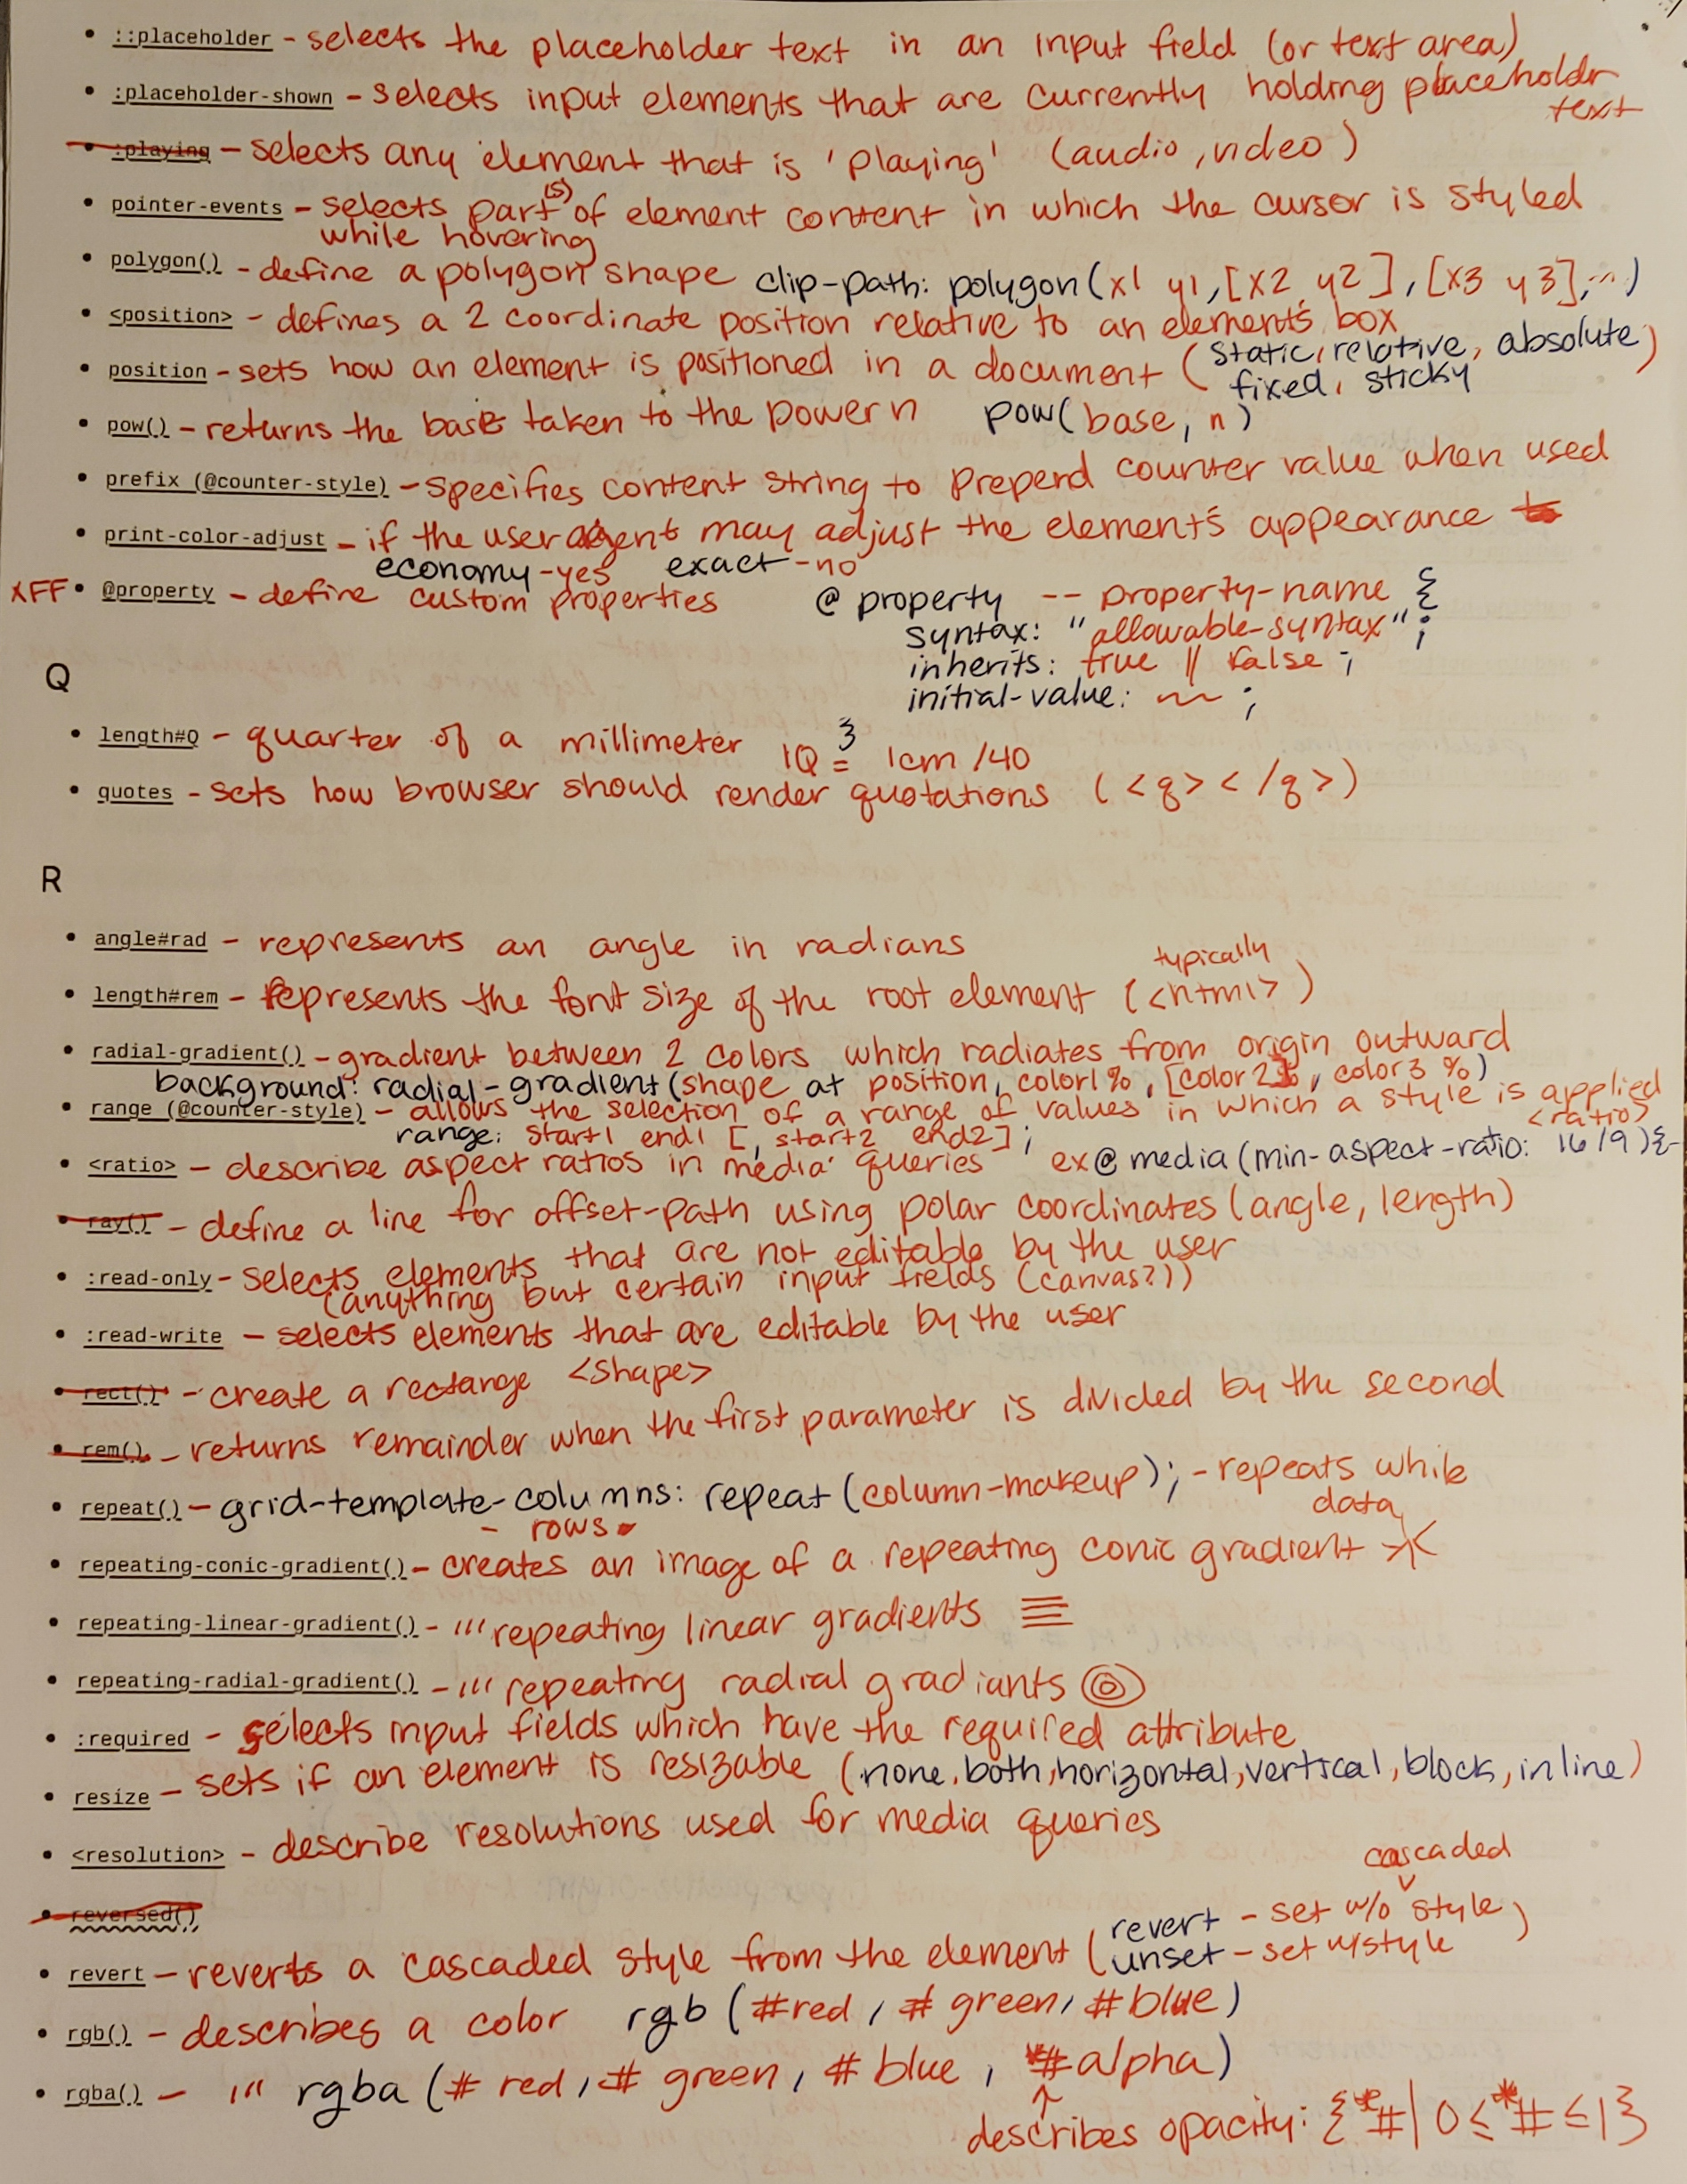 • ::placeholder - selects the placeholder text in an input field (or text area)
• :placeholder-shown - selects input elements that are currently holding placeholdr
text
• :playing - selects any element that is 'playing' (audio, video)
• pointer-events - selects part(s) of element content in which the cursor is styled
while hovering
• polygon() - define a polygon shape clip-path: polygon(x1 y1, [x2 y2], [x3 y3], ...)
• <position> - defines a 2 coordinate position relative to an element's box
• position - sets how an element is positioned in a document (static, relative, absolute)
fixed, sticky
• pow() - returns the base taken to the power n pow(base, n)
• prefix (@counter-style) - specifies content string to prepend counter value when used
• print-color-adjust - if the user agent may adjust the element's appearance
economy-yes exact-no
XFF • @property - define custom properties @property --property-name {
syntax: "allowable-syntax";
inherits: true || false;
initial-value: ~~ ;
Q
• length#Q - quarter of a millimeter 1Q = 1cm/40
• quotes - sets how browser should render quotations (<q></q>)
R
• angle#rad - represents an angle in radians
typically
• length#rem - represents the font size of the root element (<html>)
• radial-gradient() - gradient between 2 colors which radiates from origin outward
background: radial-gradient(shape at position, color1%, [color2%, color3 %)
• range (@counter-style) - allows the selection of a range of values in which a style is applied
range: start1 end1 [, start2 end2];
<ratio>
• <ratio> - describe aspect ratios in media queries ex @media(min-aspect-ratio: 16/9){
• ray() - define a line for offset-path using polar coordinates (angle, length)
• :read-only - selects elements that are not editable by the user
(anything but certain input fields (canvas?))
• :read-write - selects elements that are editable by the user
• rect() - create a rectange <shape>
• rem() - returns remainder when the first parameter is divided by the second
• repeat() - grid-template-columns: repeat(column-makeup); - repeats while
data
- rows -
• repeating-conic-gradient() - creates an image of a repeating conic gradient
• repeating-linear-gradient() - ''' repeating linear gradients
• repeating-radial-gradient() - ''' repeating radial gradiants
• :required - selects input fields which have the required attribute
• resize - sets if an element is resizable (none, both, horizontal, vertical, block, inline)
• <resolution> - describe resolutions used for media queries
• reversed()
cascaded
• revert - reverts a cascaded style from the element (revert - set w/o style)
unset - set w/style
• rgb() - describes a color rgb (#red, #green, #blue)
• rgba() - ''' rgba (#red, #green, #blue, *#alpha)
describes opacity: {*#| 0≤*#≤1}